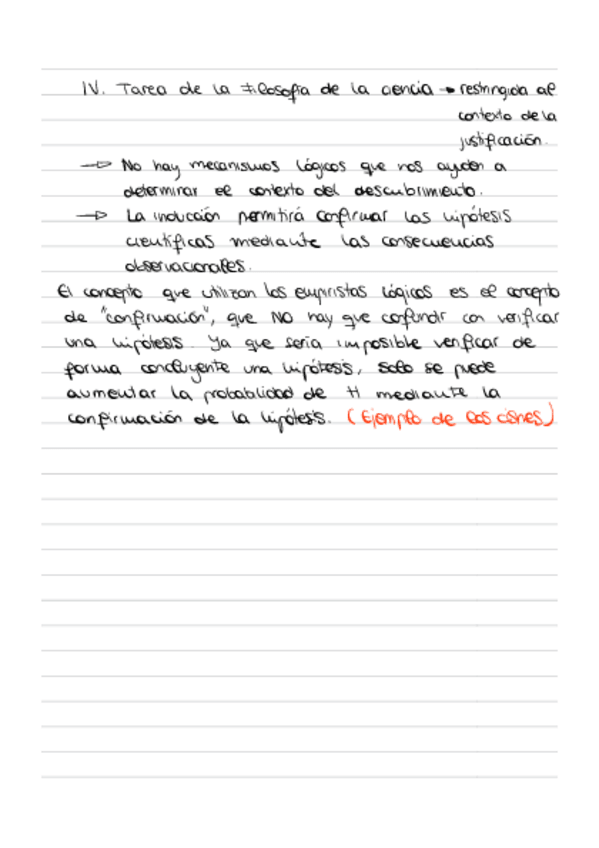 IV. Tarea de la Filosofía de la ciencia → restringida al
contexto de la
justificación.
→ No hay mecanismos lógicos que nos ayuden a
determinar el contexto del descubrimiento.
→ La inducción permitirá confirmar las hipótesis
científicas mediante las consecuencias
observacionales.
El concepto que utilizan los empiristas lógicos es el concepto
de "confirmación", que NO hay que confundir con verificar
una hipótesis. Ya que sería imposible verificar de
forma concluyente una hipótesis, solo se puede
aumentar la probabilidad de H mediante la
confirmación de la hipótesis. (Ejemplo de los cisnes)